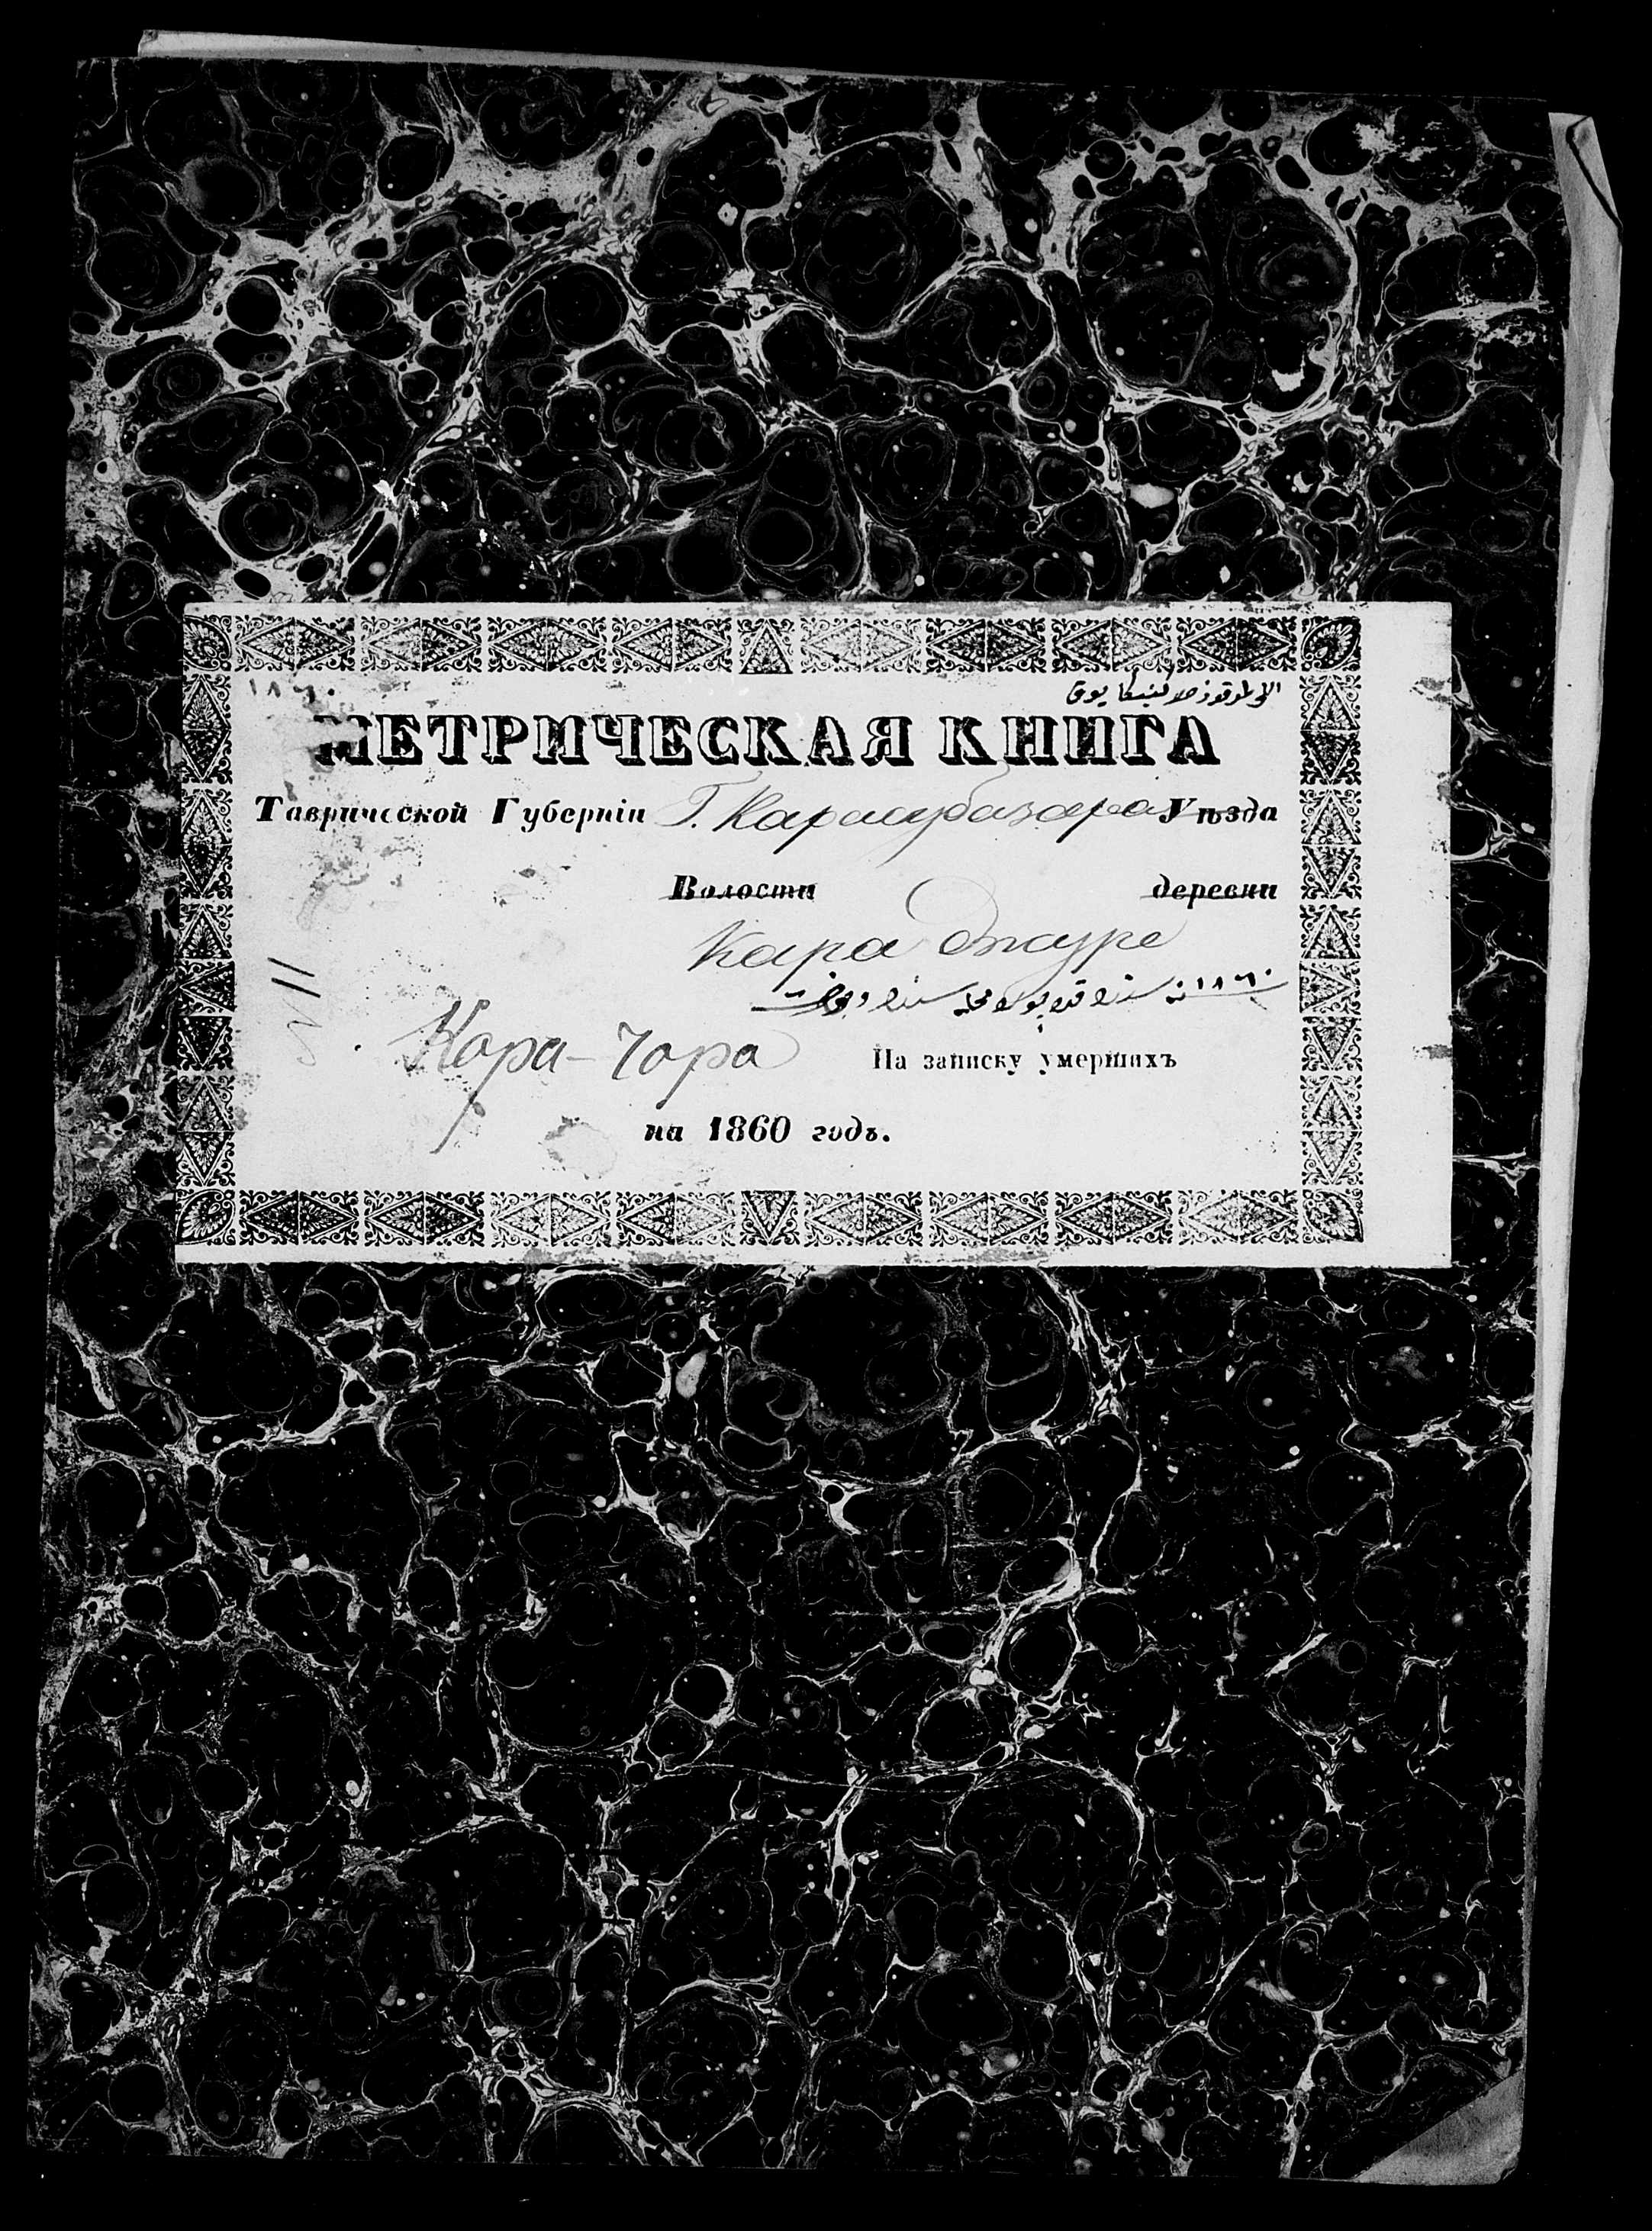 ١٨٦٠
МЕТРИЧЕСКАЯ КНИГА
Таврической Губерніи Г. Карасубазара Уѣзда
Волости деревни
Кара Джуре
١٨٦٠
№11
Кара-Чора На записку умершихъ
на 1860 годъ.